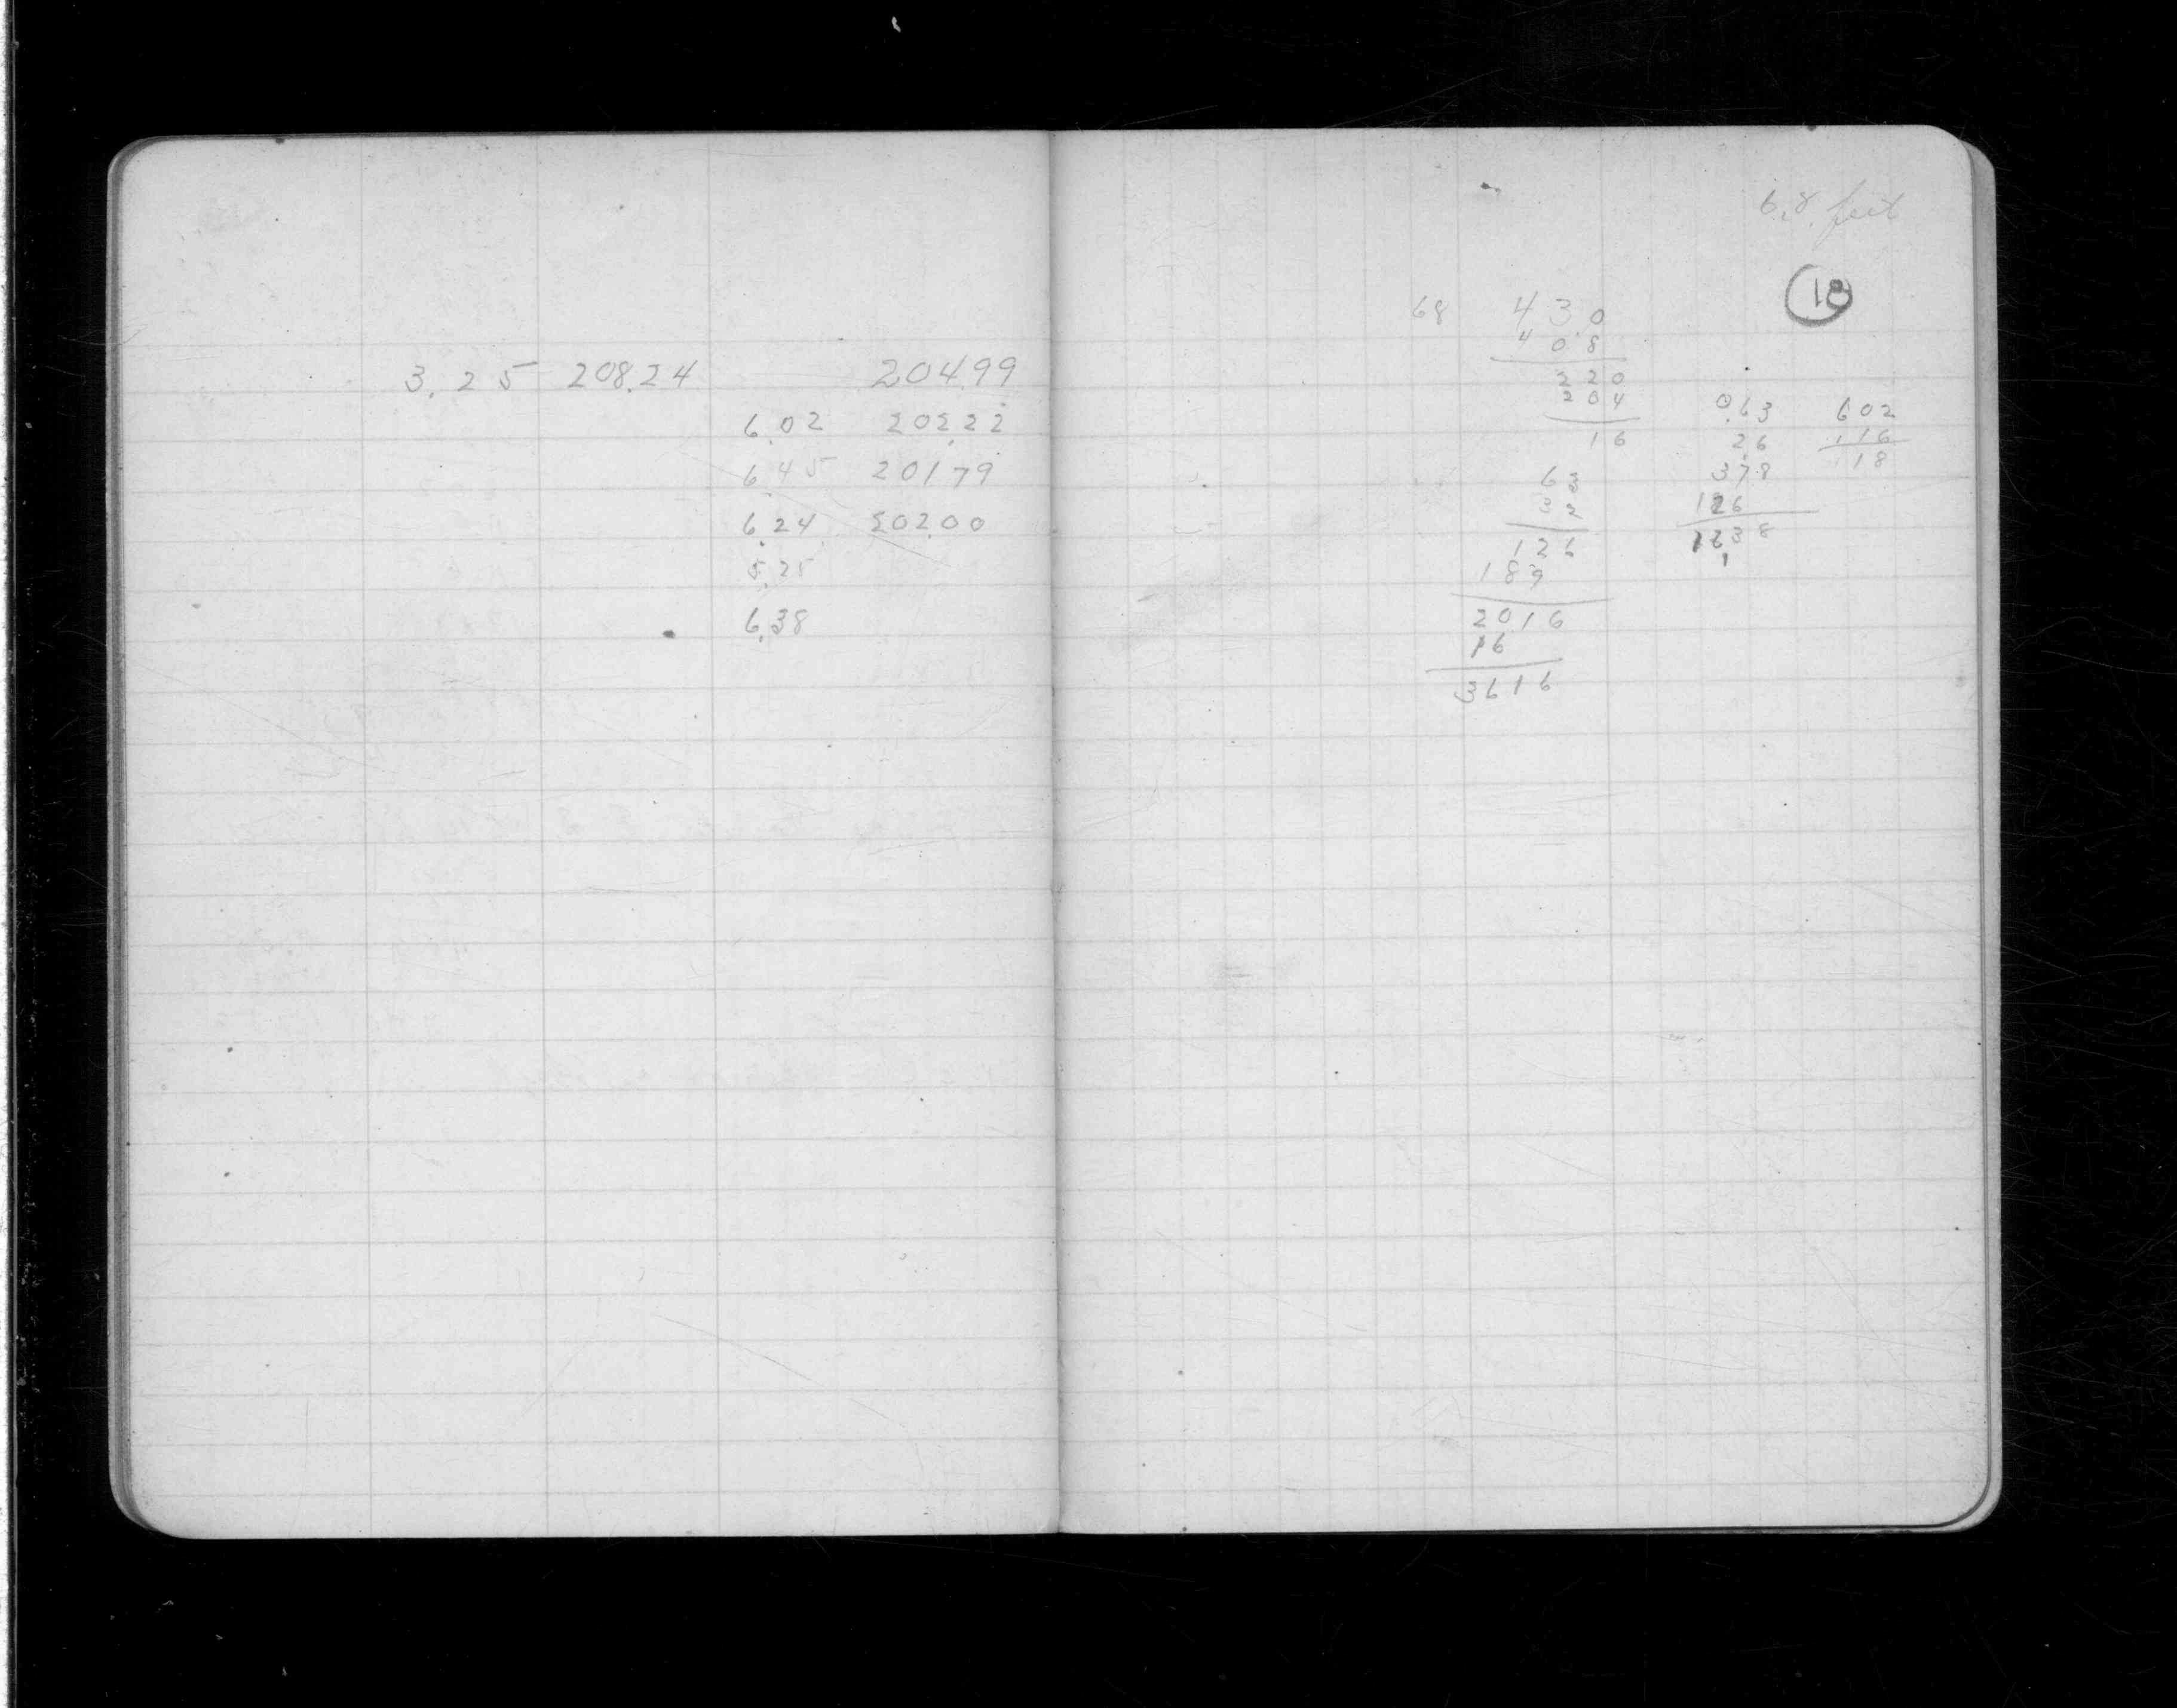 3.25 208.24 204.99
6.02 202.22
6.45 201.79
6.24 202.00
5.25
6.38
6.8 feet
18
68 43.0
40.8
220
204
16
63
32
126
189
2016
16
3616
0.63
26
378
126
1638
602
116
18